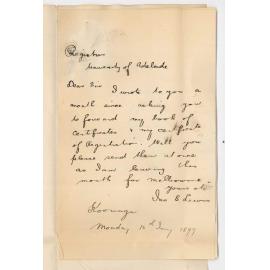 Registrar
University of Adelaide
Dear Sir I wrote to you a
month since asking you
to forward my book of
certificates & my certificate
of Registration. Will you
please send them at once
as I am leaving this
month for Melbourne
yours etc
Jas E Lewis
Kooringa
Monday 1897